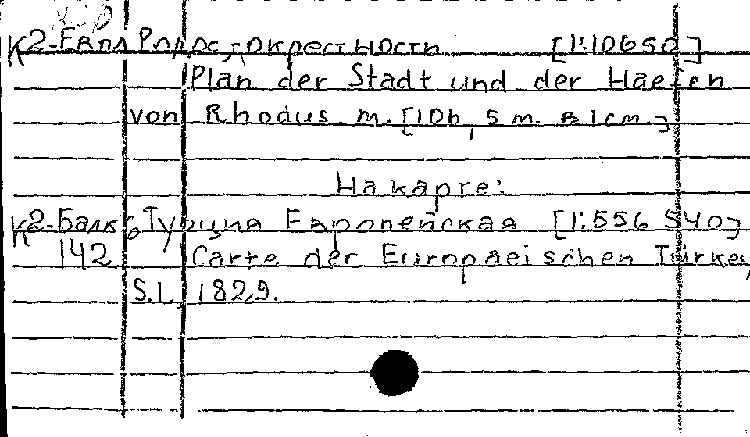 К2-Евла Родос, окрестности [1:10650]
Plan der Stadt und der Haefen
von Rhodus m. [106,5 m. в 1 cm.]
На карте:
К2-Балк Турция Европейская [1:556 540]
142 Carte der Europaeischen Türkey,
S.L, 1829.